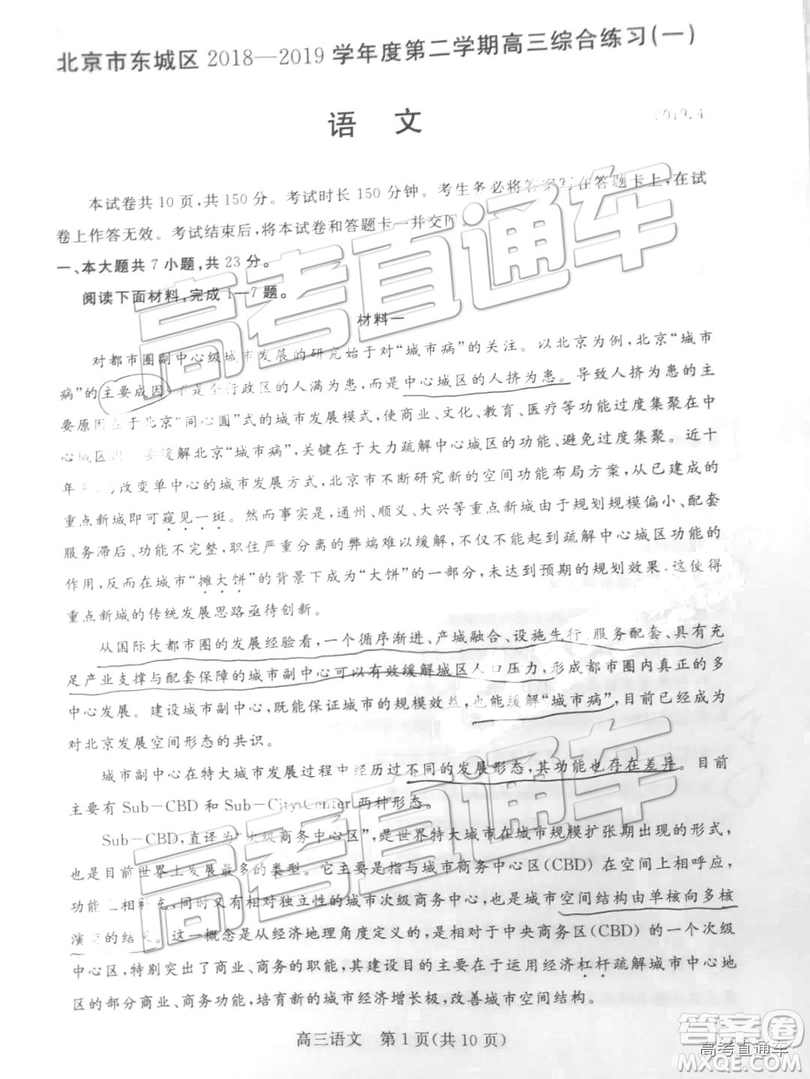 北京市东城区 2018—2019 学年度第二学期高三综合练习(一)
语 文
2019.4
本试卷共 10 页,共 150 分。考试时长 150 分钟。考生务必将答案写在答题卡上,在试
卷上作答无效。考试结束后,将本试卷和答题卡一并交回
一、本大题共 7 小题,共 23 分。
阅读下面材料,完成 1—7 题。
材料一
对都市圈副中心级城市发展的研究始于对“城市病”的关注。以北京为例,北京“城市
病”的主要成因,不是全行政区的人满为患,而是中心城区的人挤为患。导致人挤为患的主
要原因在于北京“同心圆”式的城市发展模式,使商业、文化、教育、医疗等功能过度集聚在中
心城区 要缓解北京“城市病”,关键在于大力疏解中心城区的功能、避免过度集聚。近十
年 改变单中心的城市发展方式,北京市不断研究新的空间功能布局方案,从已建成的
重点新城即可窥见一斑。然而事实是,通州、顺义、大兴等重点新城由于规划规模偏小、配套
服务滞后、功能不完整,职住严重分离的弊端难以缓解,不仅不能起到疏解中心城区功能的
作用,反而在城市“摊大饼”的背景下成为“大饼”的一部分,未达到预期的规划效果。这些
重点新城的传统发展思路亟待创新。
从国际大都市圈的发展经验看,一个循序渐进、产城融合、设施先行、服务配套、具有充
足产业支撑与配套保障的城市副中心可以有效缓解城区人口压力,形成都市圈内真正的多
中心发展。建设城市副中心,既能保证城市的规模效益,也能缓解“城市病”,目前已经成为
对北京发展空间形态的共识。
城市副中心在特大城市发展过程中经历过不同的发展形态,其功能也存在差异。目前
主要有 Sub-CBD 和 Sub-City Center 两种形态。
Sub-CBD,直译为“次级商务中心区”,是世界特大城市在城市规模扩张期出现的形式,
也是目前世界发展最多的类型。它主要是指与城市商务中心区(CBD)在空间上相呼应,
功能上相补充,并具有相对独立性的城市次级商务中心,也是城市空间结构由单核向多核
演变的结果。这一概念是从经济地理角度定义的,是相对于中央商务区(CBD)的一个次级
中心区,特别突出了商业、商务的职能,其建设目的主要在于运用经济杠杆疏解城市中心地
区的部分商业、商务功能,培育新的城市经济增长极,改善城市空间结构。
高三语文 第 1 页(共 10 页)
高考直通车
高考直通车
答案卷
高考直通车
MXQE.COM